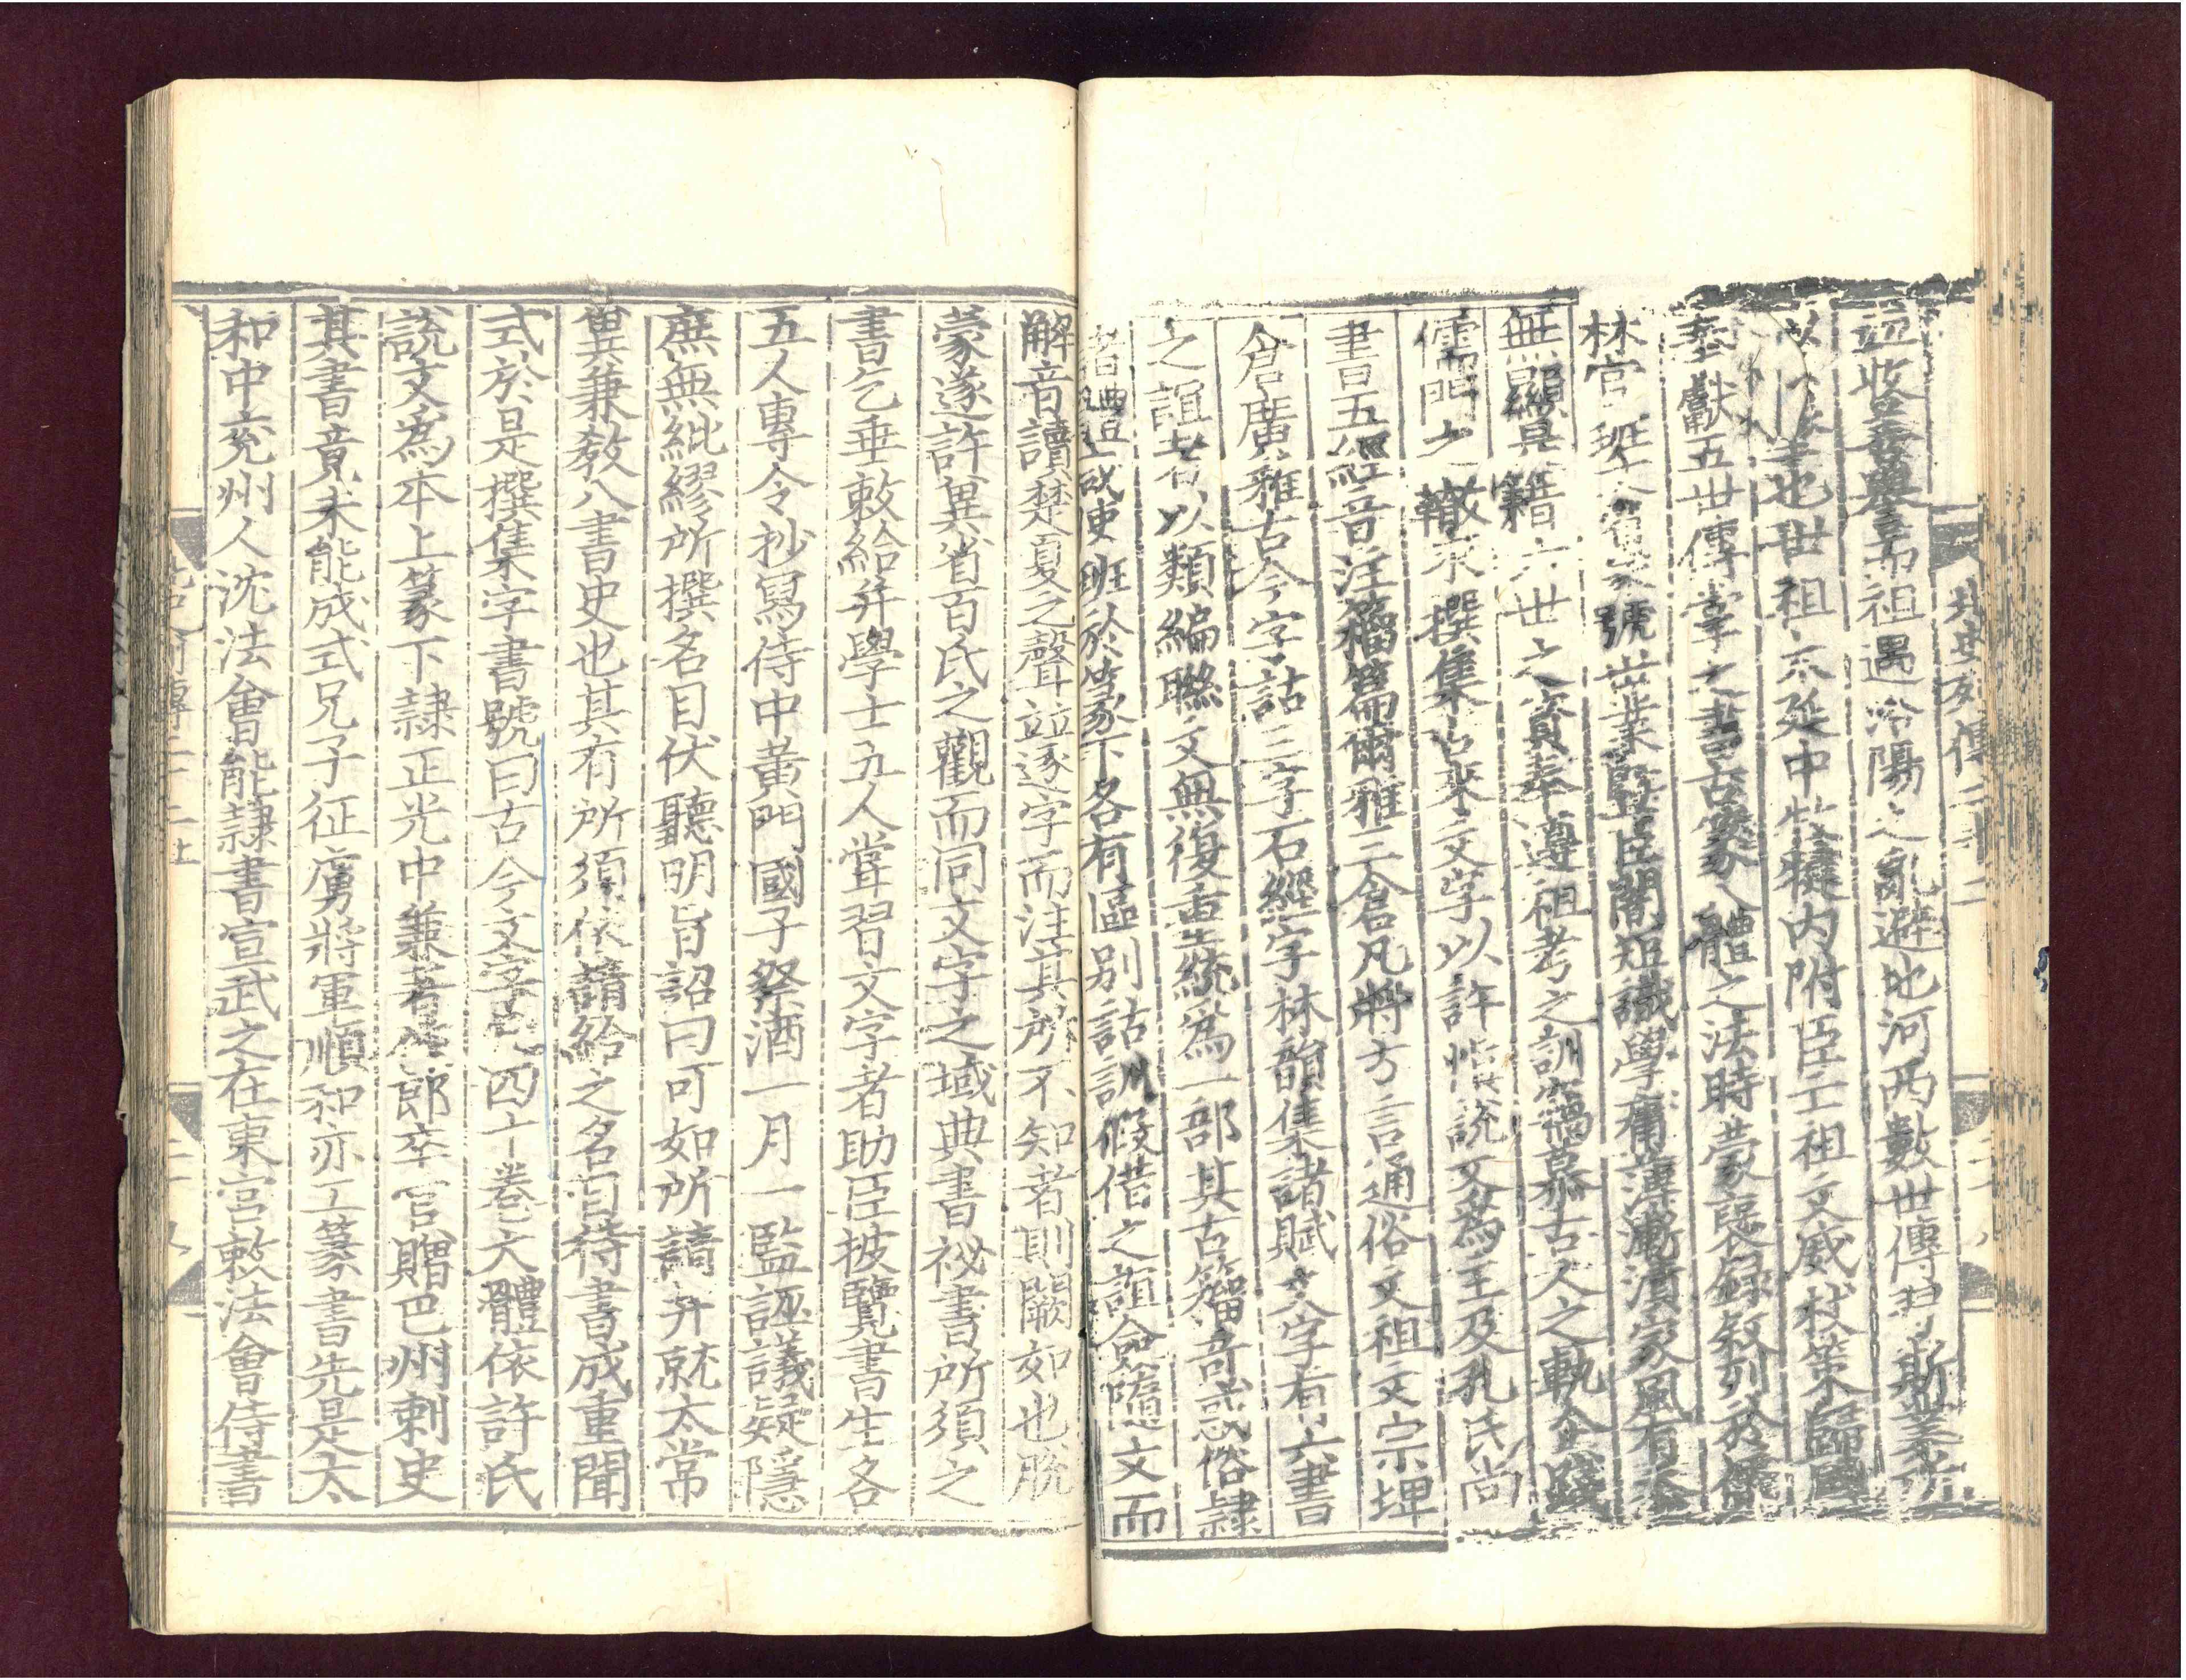 北史列傳二十二
並收善譽而祖遇洛陽之亂避地河西數世傳習斯業所
以不墜也世祖太延中牧犍內附臣亡祖文威杖策歸國
奉獻五世傳掌之書古篆八體之法時蒙襃錄敘列於儒
林官班文省家號世業暨臣闇短識學庸薄漸漬家風有忝
無顯是籍六世之資奉遵祖考之訓竊慕古人之軌企踐
儒門之轍求撰集古來文字以許慎說文為主及孔氏尚
書五經音注籀篇爾雅三倉凡將方言通俗文祖文宗埤
倉廣雅古今字詁三字石經字林韻集諸賦文字有六書
之誼者以類編聯文無復重統為一部其古籀奇惑俗隸
諸體咸使班於篆下各有區別詁訓假借之誼僉隨文而
解音讀楚夏之聲並逐字而注其所不知者則闕如也脫
蒙遂許冀省百氏之觀而同文字之域典書祕書所須之
書乞垂敕給并學士五人甞習文字者助臣披覽書生各
五人專令抄寫侍中黃門國子祭酒一月一監評議疑隱
庶無紕繆所撰名目伏聽明旨詔曰可如所請并就太常
兾兼教八書史也其有所須依請給之名目待書成重聞
式於是撰集字書號曰古今文字四十卷大體依許氏
說文為本上篆下隸正光中兼著作郎卒官贈巴州刺史
其書竟未能成式兄子征虜將軍順和亦工篆書先是太
和中兗州人沈法會能隸書宣武之在東宮敕法會侍書